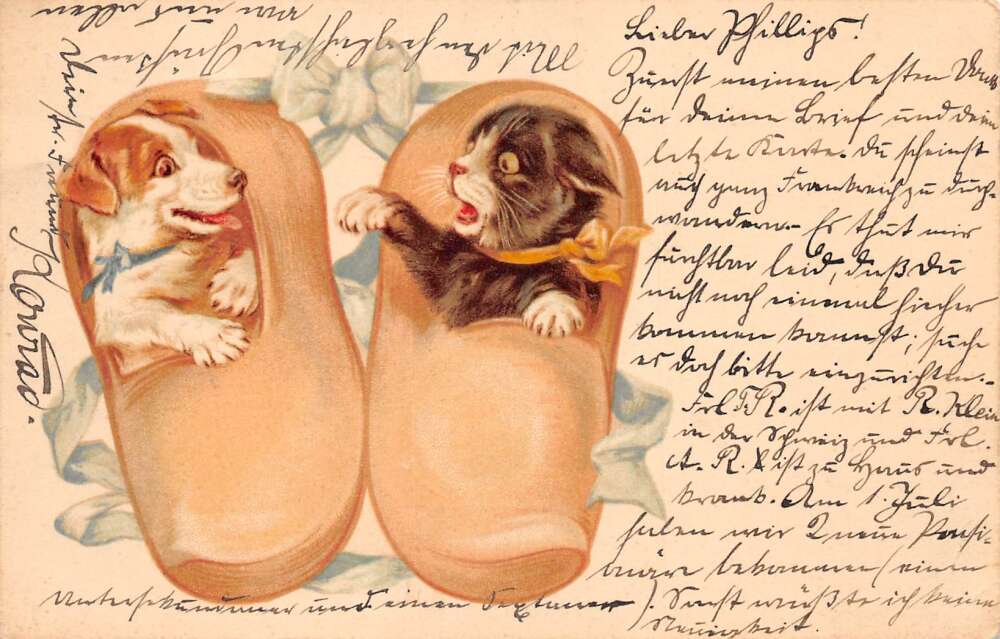 Lieber Phillips!
Zuerst meinen besten Dank
für deinen Brief und deine
letzte Karte. Du scheinst
auch ganz Frankreich zu durch-
wandern. Es thut mir
furchtbar leid, daß Du
nicht noch einmal hierher
kommen kannst; suche
es doch bitte einzurichten.
Frl. F. R. ist mit R. Klein
in der Schweiz und Frl.
A. R. ist zu Haus und
krank. Am 1. Juli
haben wir 2 neue Pensi-
onäre bekommen (einen
Untersekundaner und einen Sextaner). Sonst wüßte ich keine
Neuigkeit.
Mit den herzlichsten Grüßen
von uns allen
Dein tr. Freund
Konrad.